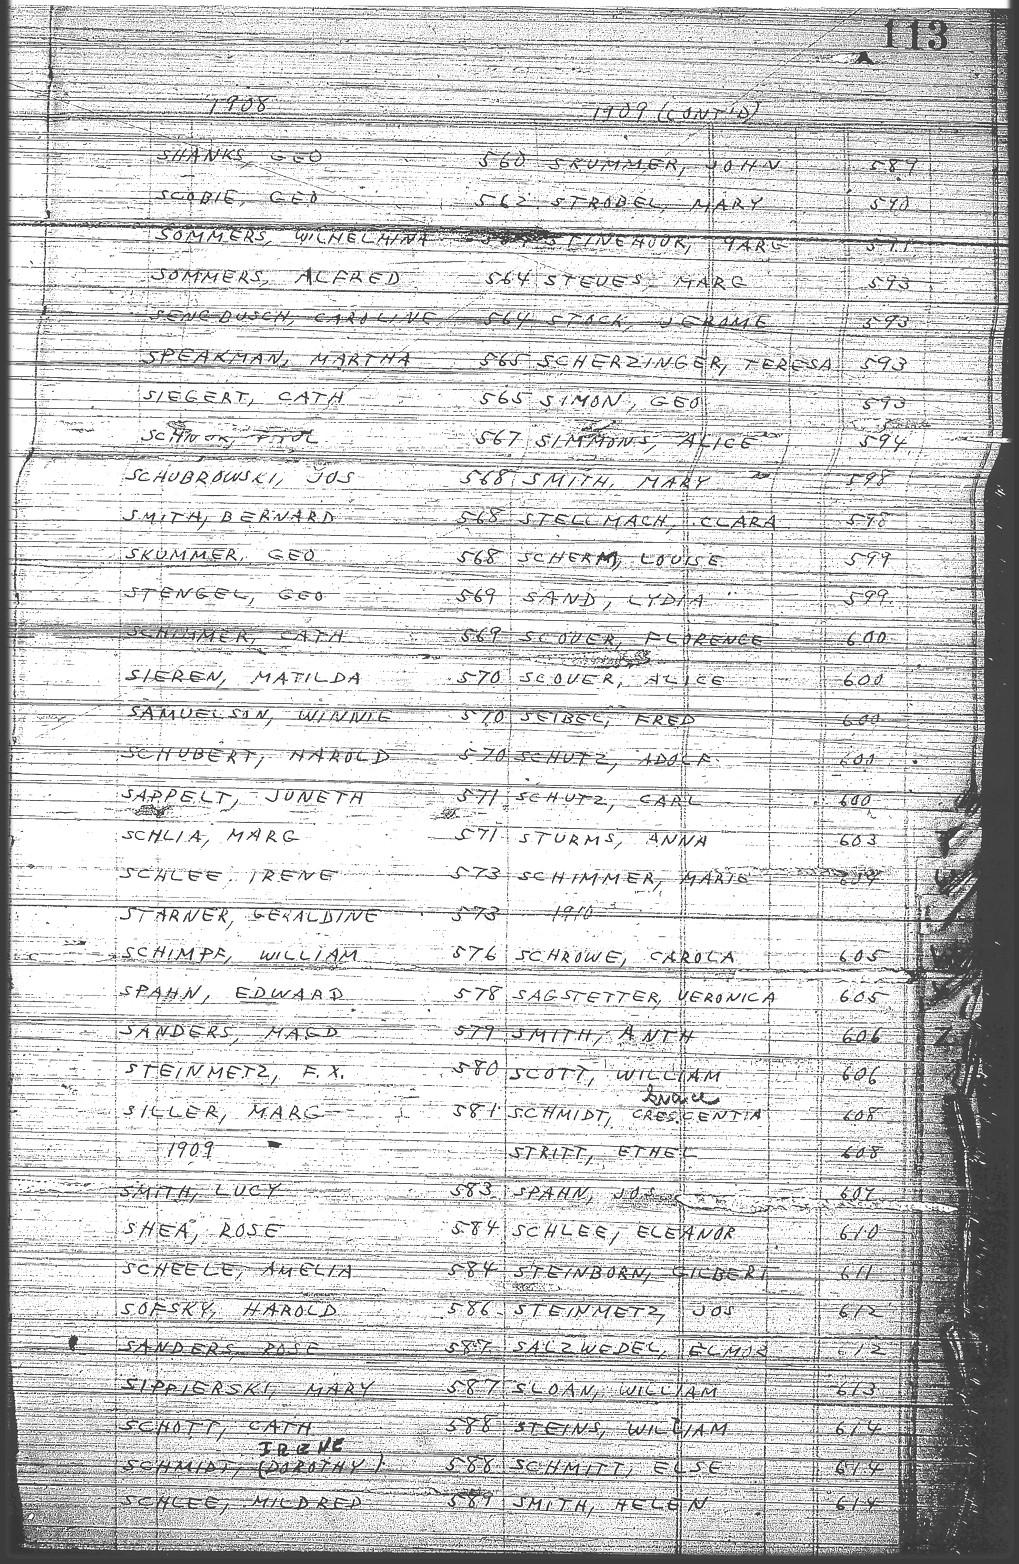 113
1908
SHANKS, GEO 560
SCOBIE, GEO 562
SOMMERS, WILHELMINA
SOMMERS, ALFRED 564
SENGBUSCH, CAROLINE 564
SPEAKMAN, MARTHA 565
SIEGERT, CATH 565
567
SCHUBROWSKI, JOS 568
SMITH, BERNARD 568
SKUMMER, GEO 568
STENGEL, GEO 569
SCHIMMER, CATH 569
SIEREN, MATILDA 570
SAMUELSON, WINNIE 570
SCHUBERT, HAROLD 570
SAPPELT, JUNETH 571
SCHLIA, MARG 571
SCHLEE, IRENE 573
STARNER, GERALDINE 573
SCHIMPF, WILLIAM 576
SPAHN, EDWARD 578
SANDERS, MAGD 579
STEINMETZ, F.X. 580
SILLER, MARG 581
1909
SMITH, LUCY 583
SHEA, ROSE 584
SCHEELE, AMELIA 584
SOFSKY, HAROLD 586
SANDERS, ROSE 587
SIPPIERSKI, MARY 587
SCHOTT, CATH 588
IRENE
SCHMIDT, (DOROTHY) 588
SCHLEE, MILDRED 589
1909 (CONT'D)
SKUMMER, JOHN 589
STROBEL, MARY 590
STINEHOUR, MARG 591
STEVES, MARG 593
STOCK, JEROME 593
SCHERZINGER, TERESA 593
SIMON, GEO 593
SIMMONS, ALICE 594
SMITH, MARY 598
STELLMACH, CLARA 598
SCHERM, LOUISE 599
SAND, LYDIA 599
SCOVER, FLORENCE 600
SCOVER, ALICE 600
SEIBEL, FRED 600
SCHUTZ, ADOLF 600
SCHUTZ, CARL 600
STURMS, ANNA 603
SCHIMMER, MARIE
1910
SCHROWE, CAROLA 605
SAGSTETTER, VERONICA 605
SMITH, ANTH 606
SCOTT, WILLIAM 606
Grace
SCHMIDT, CRESCENTIA 608
STRITT, ETHEL 608
SPAHN, JOS 609
SCHLEE, ELEANOR 610
STEINBORN, GILBERT 611
STEINMETZ, JOS 612
SALZWEDEL, ELMOR 612
SLOAN, WILLIAM 613
STEINS, WILLIAM 614
SCHMITT, ELSE 614
SMITH, HELEN 614